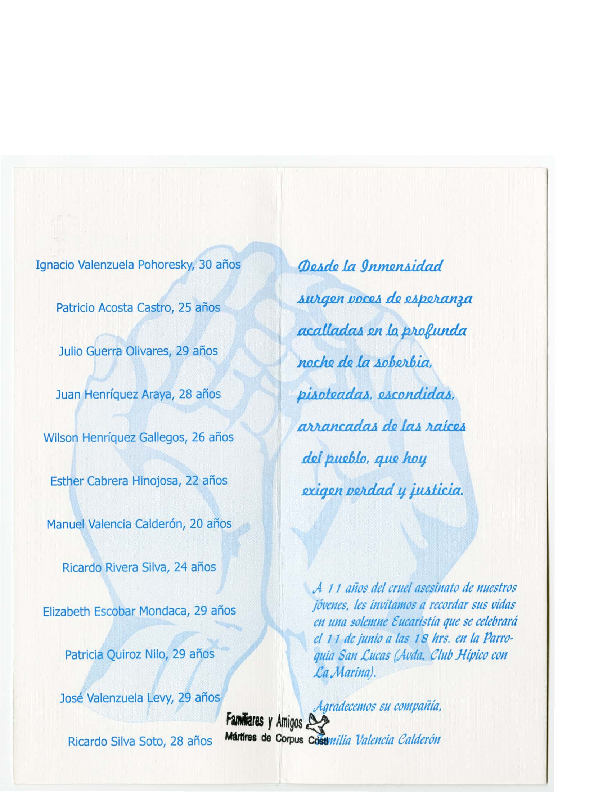 Ignacio Valenzuela Pohoresky, 30 años
Patricio Acosta Castro, 25 años
Julio Guerra Olivares, 29 años
Juan Henríquez Araya, 28 años
Wilson Henríquez Gallegos, 26 años
Esther Cabrera Hinojosa, 22 años
Manuel Valencia Calderón, 20 años
Ricardo Rivera Silva, 24 años
Elizabeth Escobar Mondaca, 29 años
Patricia Quiroz Nilo, 29 años
José Valenzuela Levy, 29 años
Ricardo Silva Soto, 28 años
Desde la Inmensidad
surgen voces de esperanza
acalladas en la profunda
noche de la soberbia,
pisoteadas, escondidas,
arrancadas de las raíces
del pueblo, que hoy
exigen verdad y justicia.
A 11 años del cruel asesinato de nuestros
jóvenes, les invitamos a recordar sus vidas
en una solemne Eucaristía que se celebrará
el 11 de junio a las 18 hrs. en la Parro-
quia San Lucas (Avda. Club Hípico con
La Marina).
Agradecemos su compañía,
Familia Valencia Calderón
Familiares y Amigos
Mártires de Corpus Cristi